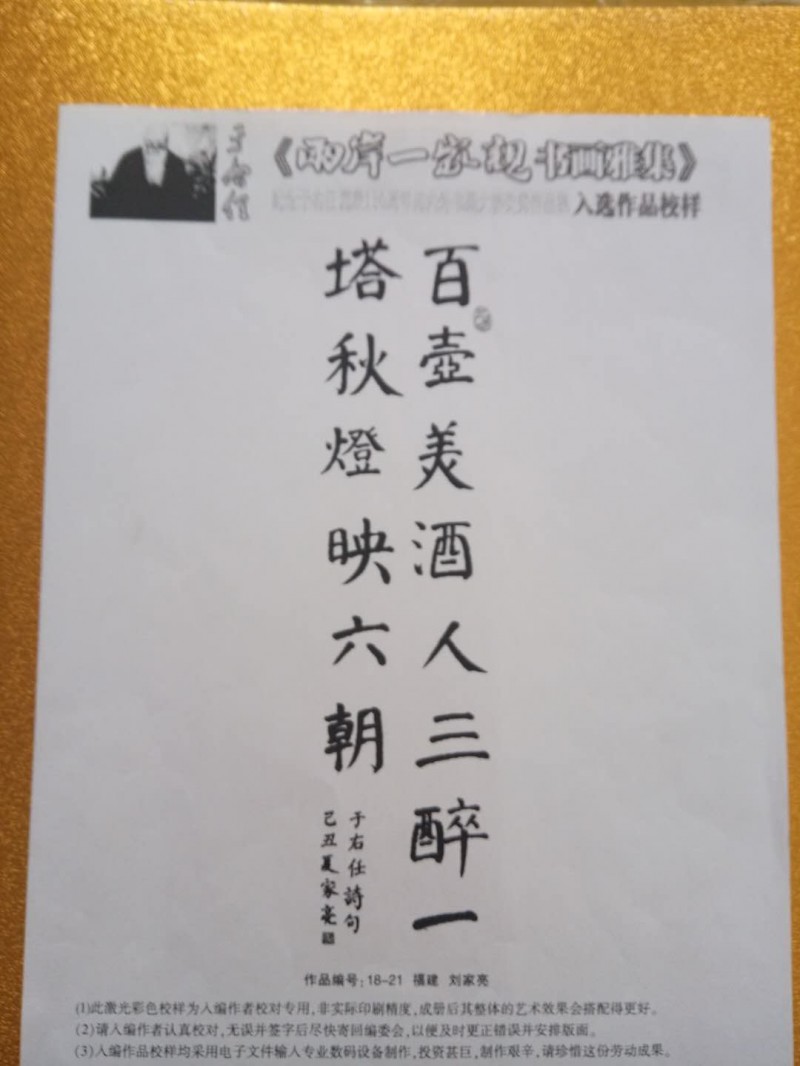 于右任
《兩岸一家親书画雅集》
入选作品校样
百壺美酒人三醉一
塔秋燈映六朝
于右任詩句
己丑夏家亮
作品编号:18-21 福建 刘家亮
(1)此激光彩色校样为入编作者校对专用,非实际印刷精度,成册后其整体的艺术效果会搭配得更好。
(2)请入编作者认真校对,无误并签字后尽快寄回编委会,以便及时更正错误并安排版面。
(3)入编作品校样均采用电子文件输入专业数码设备制作,投资甚巨,制作艰辛,请珍惜这份劳动成果。